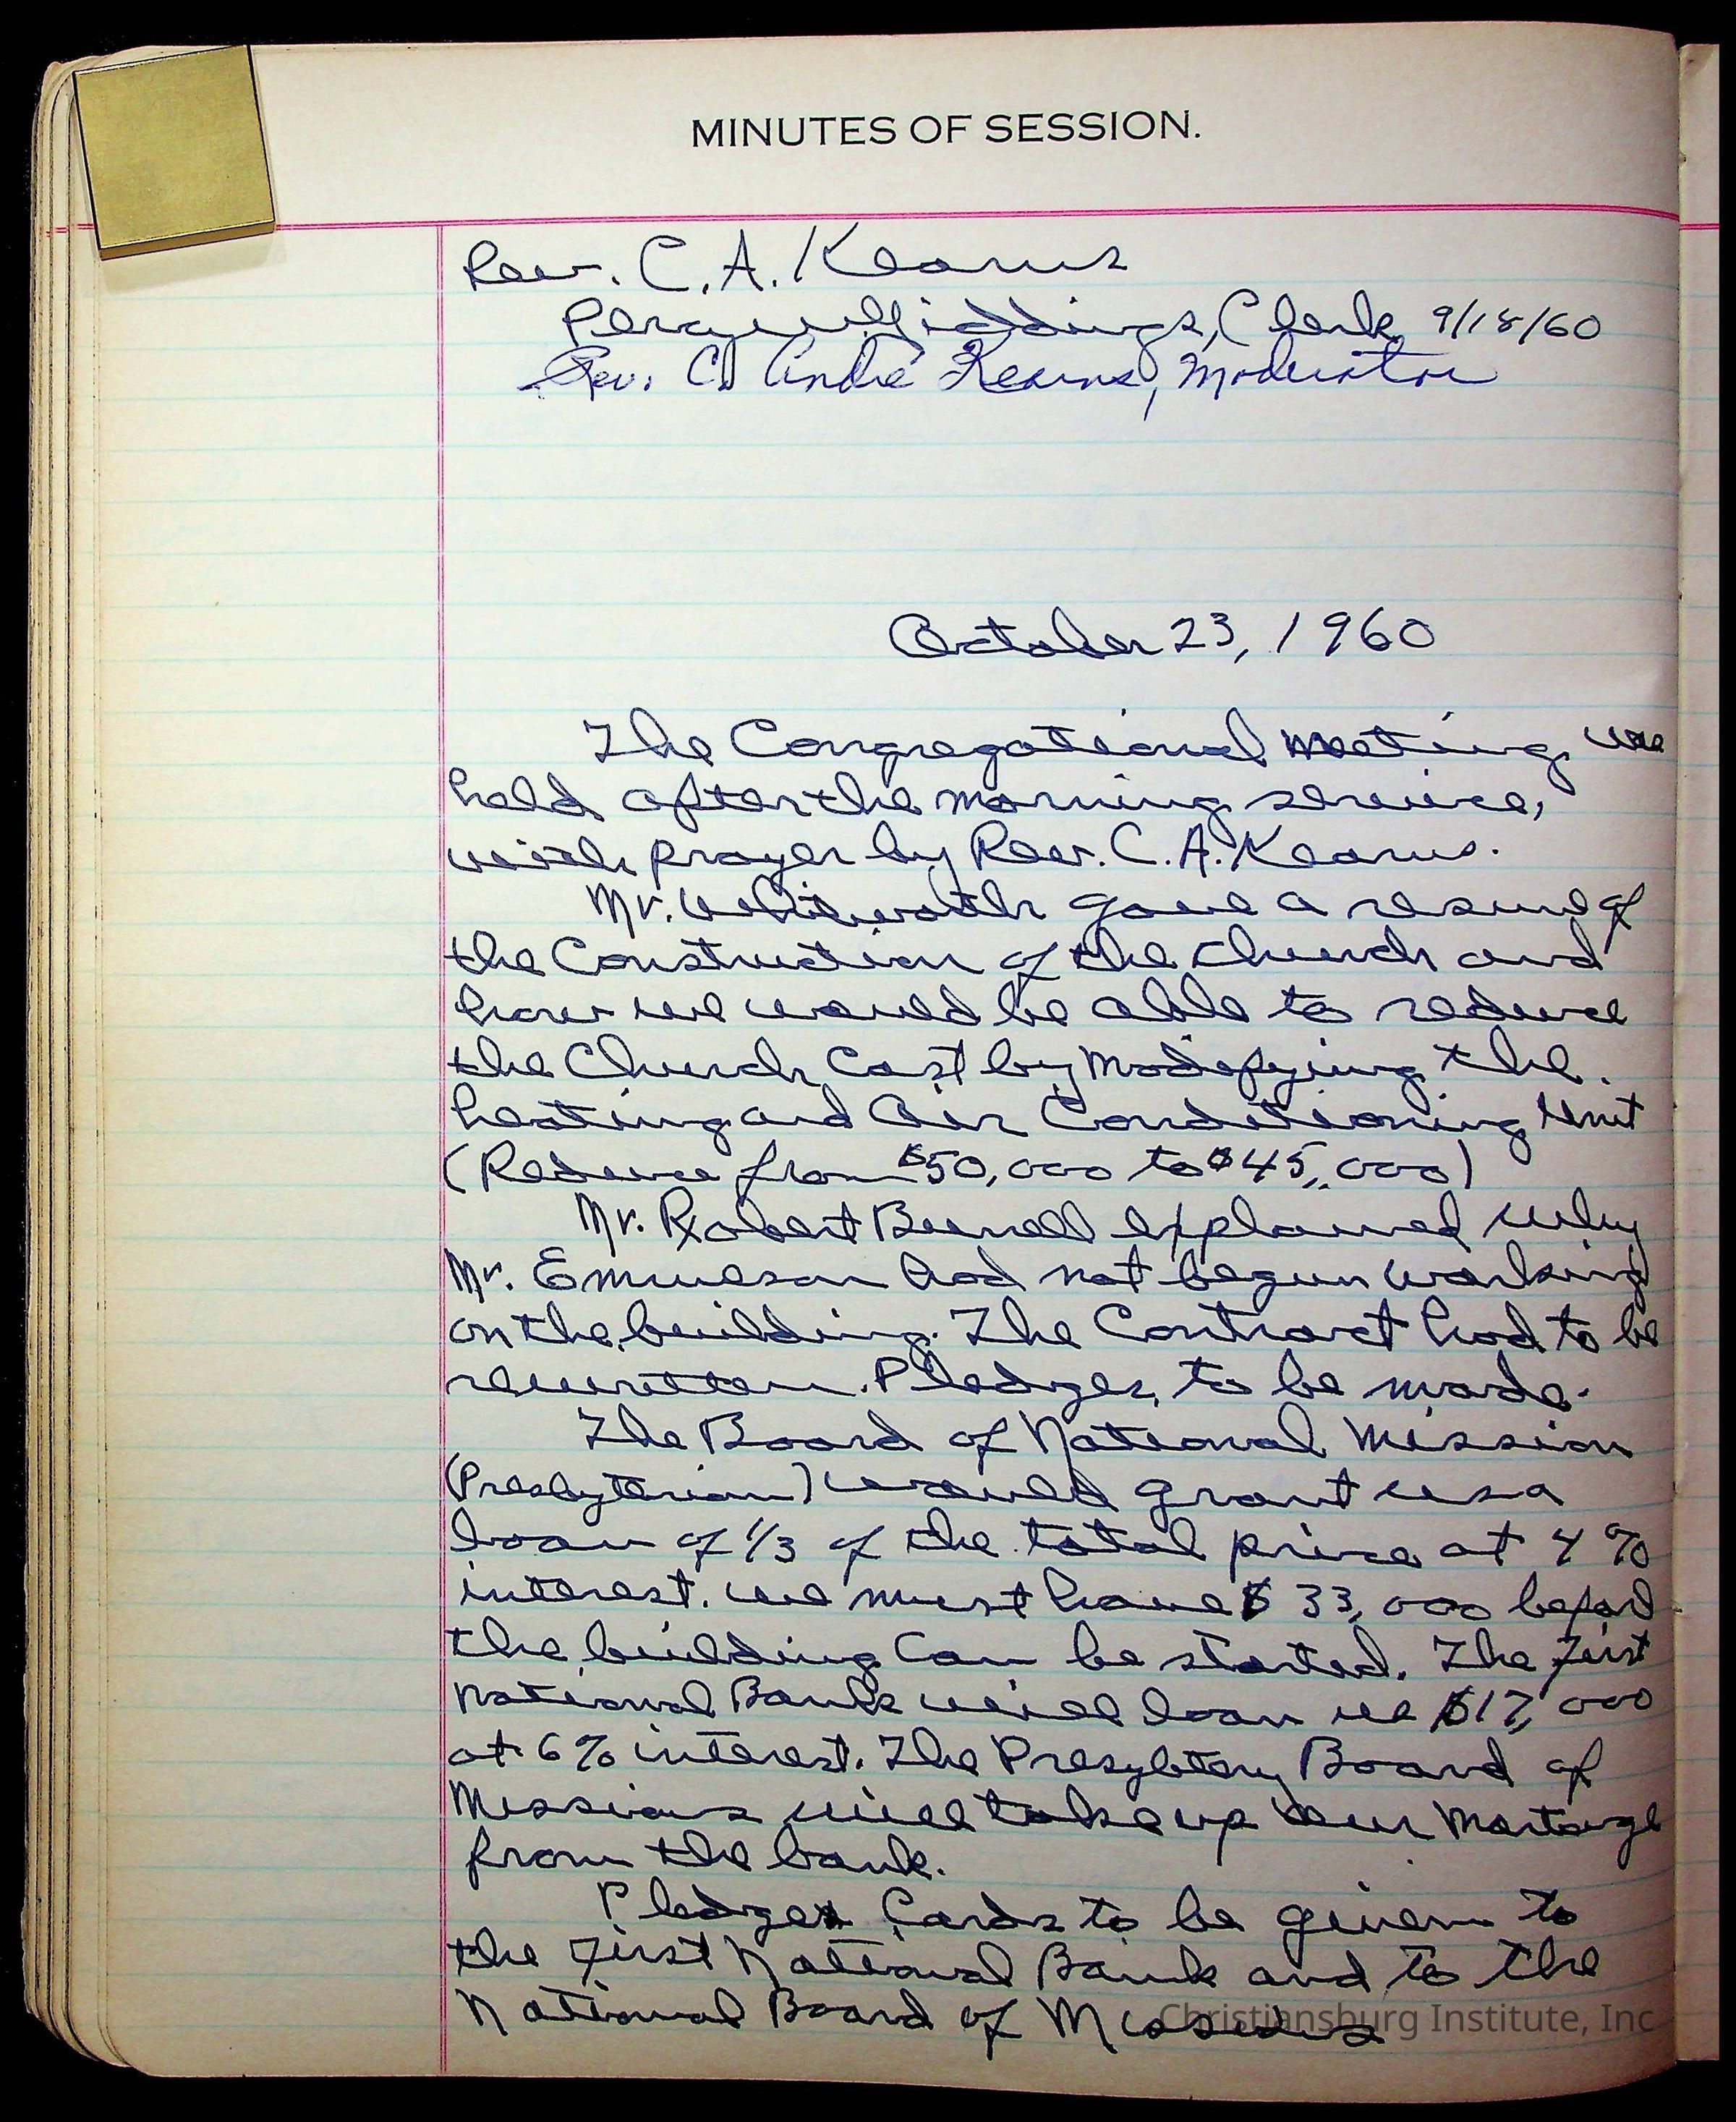 MINUTES OF SESSION.
Rev. C. A. Kearns
Giddings, Clerk 9/18/60
Rev. C. André Kearns, Moderator
October 23, 1960
The Congregational Meeting was
held after the morning service,
with prayer by Rev. C. A. Kearns.
Mr. Whitworth gave a resume of
the Construction of the church and
how we would be able to reduce
the Church Cost by Modifying the
heating and Air Conditioning Unit
(Reduce from $50,000 to $45,000)
Mr. Robert Burrell explained why
Mr. had not begun working
on the building. The Contract had to be
rewritten. Pledges, to be made.
The Board of National Mission
(Presbyterian) would grant us a
loan of 1/3 of the total price at 4%
interest. We must have $33,000 before
the building Can be started. The First
National Bank will loan us $17,000
at 6% interest. The Presbytery Board of
Missions will take up our Mortage
from the bank.
Pledges Cards to be given to
the First National Bank and to the
National Board of Missions
Christiansburg Institute, Inc